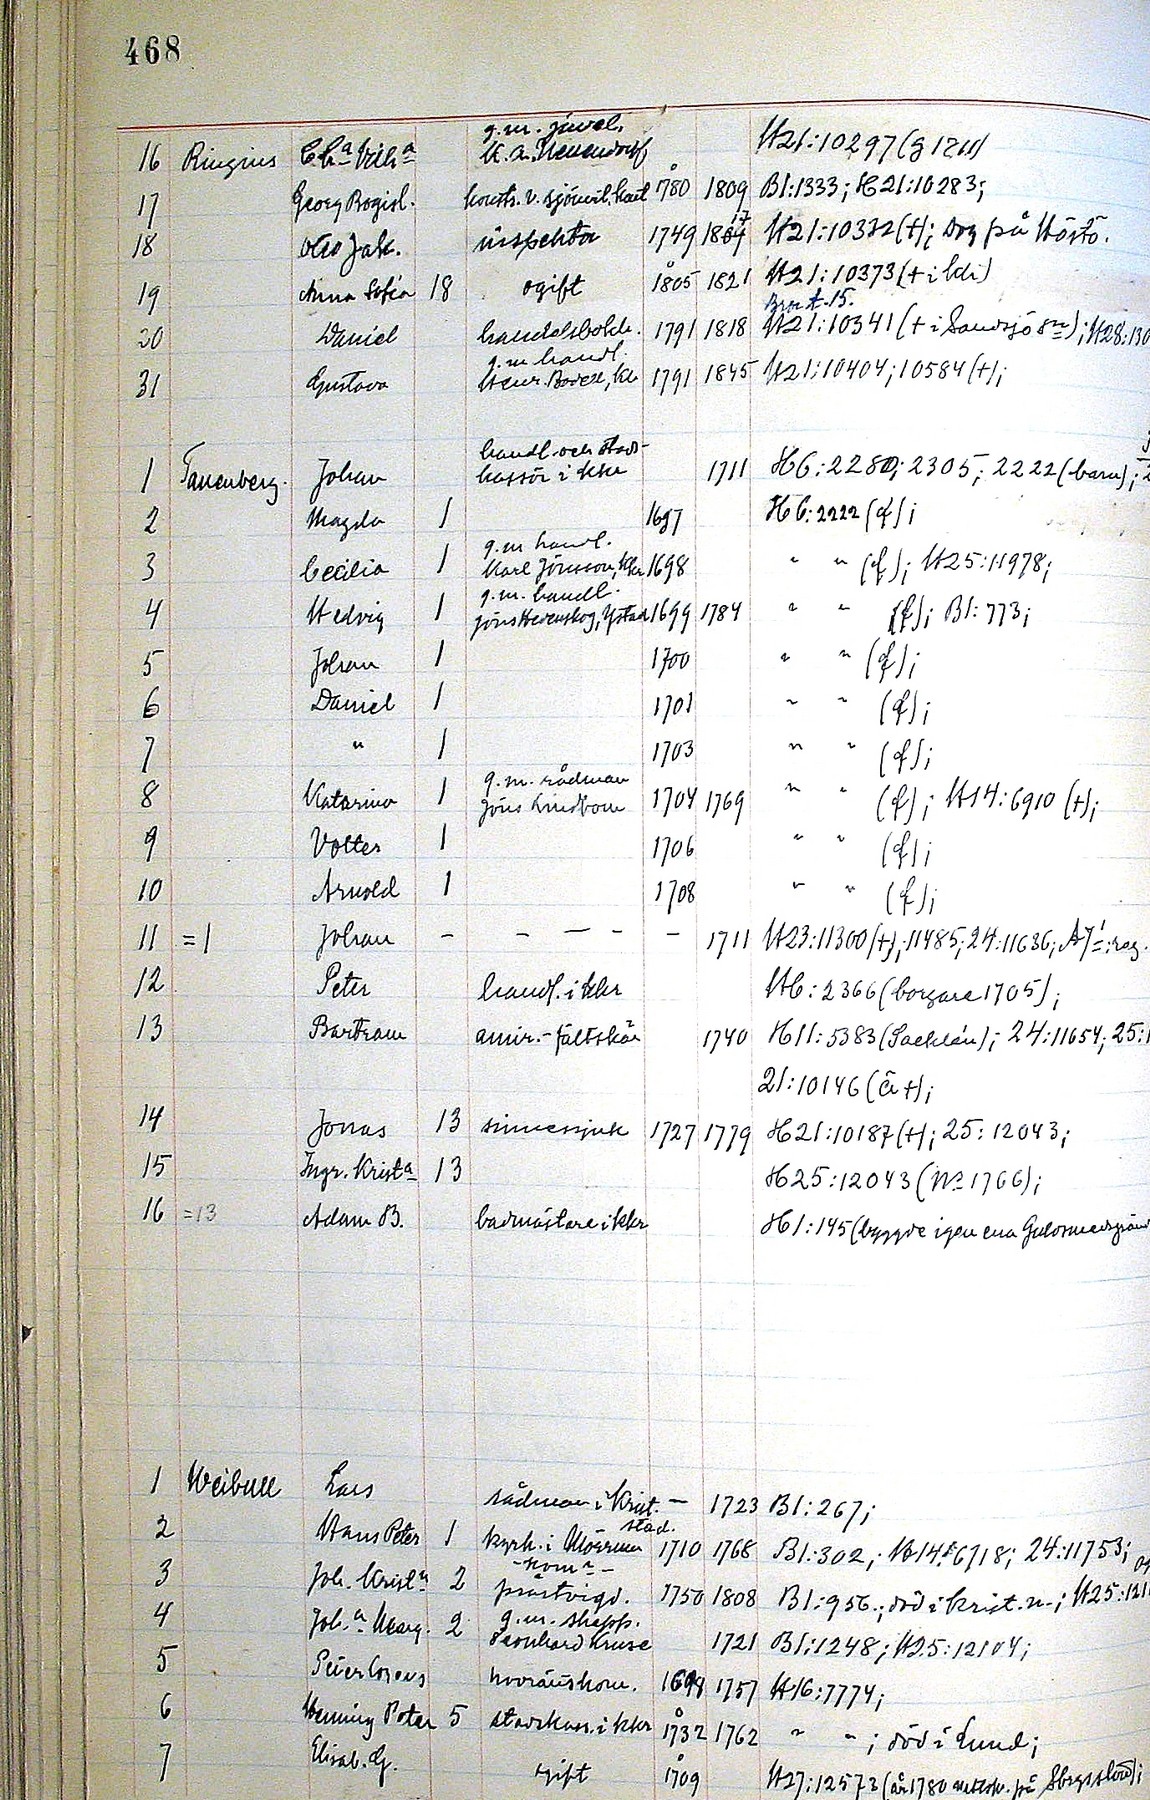 468
g.m. juvel.
16 Ringius C.C:a Vilh:a H21:10297 (g
17 Georg Bogisl. 1780 1809 B1:1333; H21:10283;
18 Otto Jak. inspektor 1749 1817 H21:10332 (+); dog på Höstö.
19 Anna Sofia 18 ogift 1805 1821 H21:10373 (+ i
20 Daniel handelsbokh. 1791 1818 H21:10341 (+ i Sandsjö
g.m. handl.
31 Gustava 1791 1845 H21:10404; 10584 (+);
handl. och stads-
1 Tanenberg. Johan kassör i kkr 1711 H6:2280; 2305; 2222 (barn);
2 Magda 1 1697 H6:2222 (f);
g.m. handl.
3 Cecilia 1 Karl Jönsson, kkr 1698 " " (f); H25:11978;
g.m. handl.
4 Hedvig 1 Jöns Hedenskog, Ystad 1699 1784 " " (f); B1:773;
5 Johan 1 1700 " " (f);
6 Daniel 1 1701 " " (f);
7 " 1 1703 " " (f);
g.m. rådman
8 Katarina 1 Jöns Lindbom 1704 1769 " " (f); H14:6910 (+);
9 Volter 1 1706 " " (f);
10 Arnold 1 1708 " " (f);
11 =1 Johan - - - - - 1711 H23:11300 (+); 11485; 24:11636;
12 Peter handl. i kkr H6:2366 (borgare 1705);
13 Bartram amir.-fältskär 1740 H11:5383 24:11654; 25:1
21:10146 (är +);
14 Jonas 13 sinnessjuk 1727 1779 H21:10187 (+); 25:12043;
15 Ingr. Krist:a 13 H25:12043 (N:o 1766);
16 =13 Adam B. badmästare i kkr H1:145 (byggde igen ena Guldsmedsgränd
1 Weibull Lars rådman i Krist. - 1723 B1:267;
stad.
2 Hans Peter 1 kyrk. i Mörrum 1710 1768 B1:302; H14:6718; 24:11753;
3 Joh. Krist:n 2 prästvigd. 1750 1808 B1:956; död i Krist.n-; H25:121
g.m. skepp.
4 Joh:a Marg. 2 Leonhard Kruse 1721 B1:1248; H25:12104;
5 1698 1757 H16:7774;
6 Henning Peter 5 stadskass. i kkr 1732 1762 " "; död i Lund;
7 Elisab. G. ogift 1709 H27:12573 (år 1780